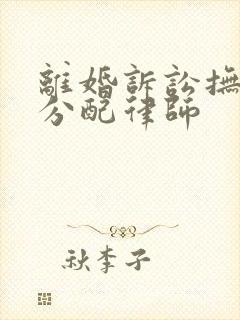 離婚訴訟撫
分配律師
秋李子